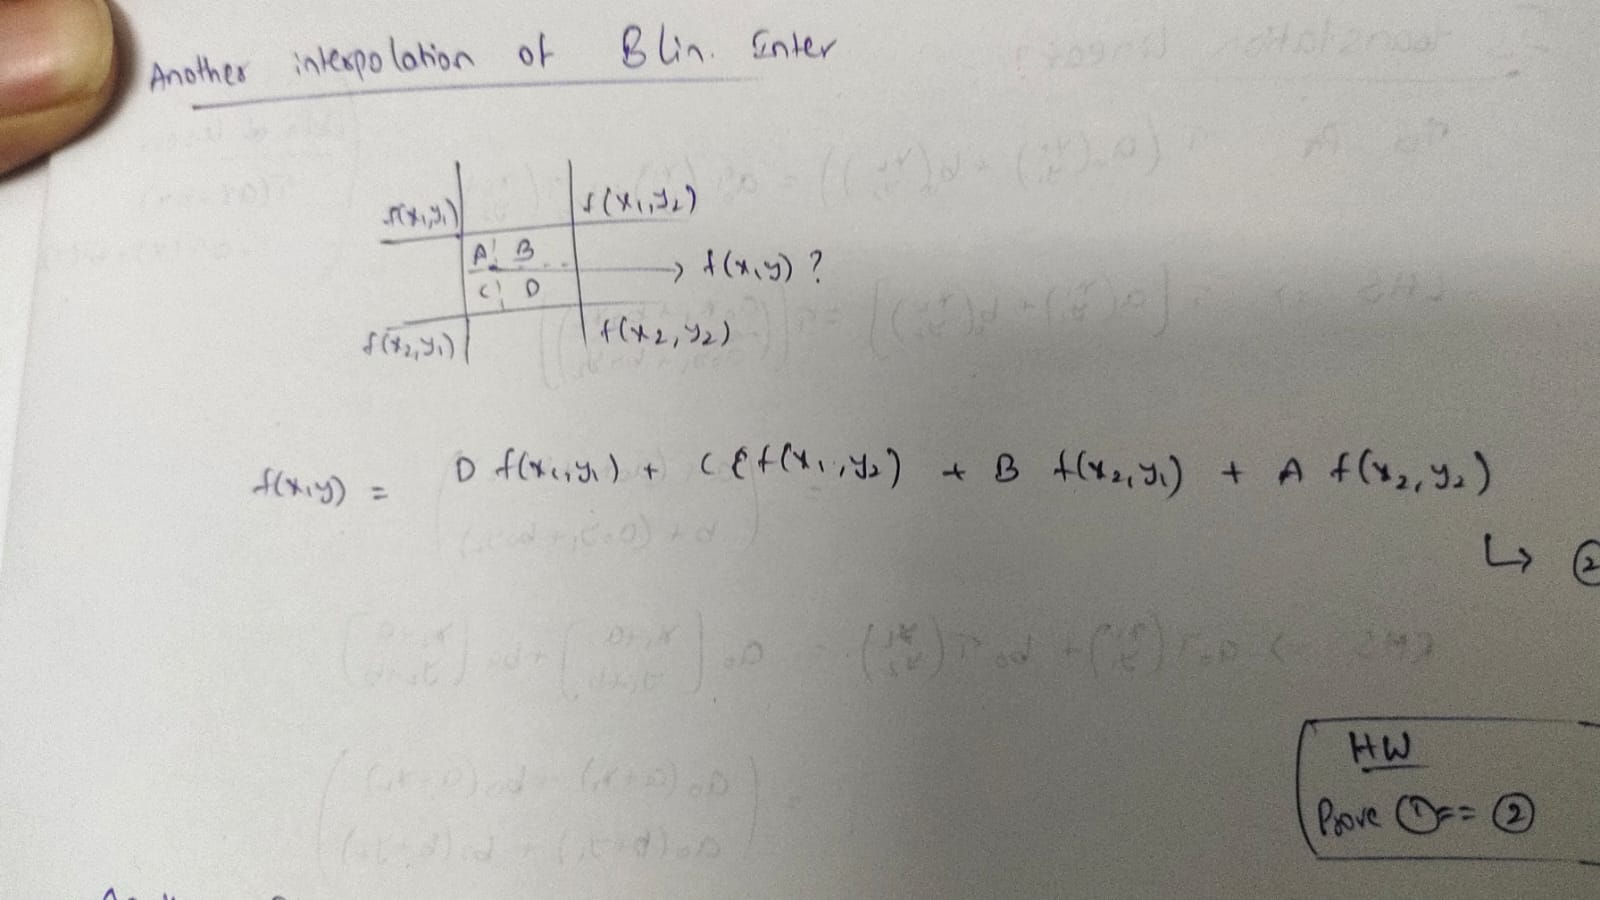 Another interpolation of B Lin. Inter
f(x₁,y₁) f(x₁,y₂)
A B
→ f(x,y) ?
C D
f(x₂,y₁) f(x₂,y₂)
f(x,y) = D f(x₁,y₁) + C f(x₁,y₂) + B f(x₂,y₁) + A f(x₂,y₂)
↳ ②
HW
Prove ① == ②